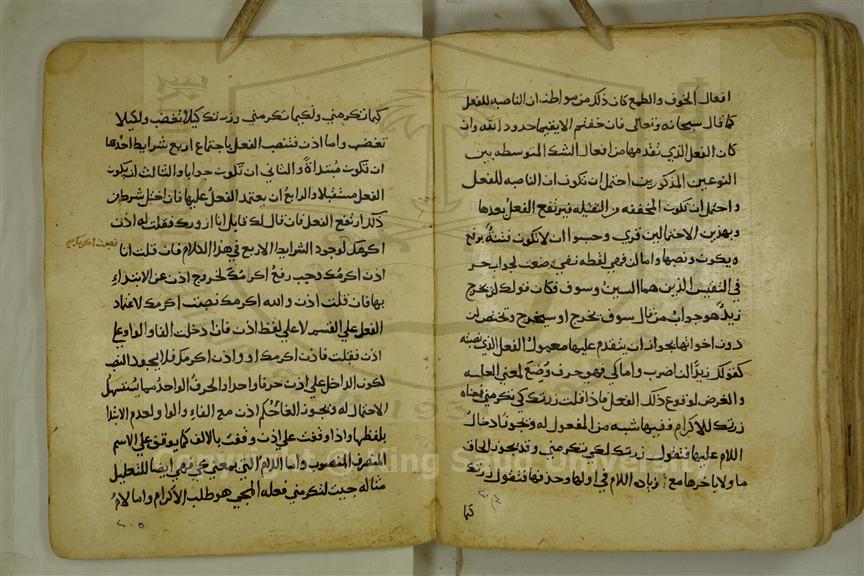 افعال الخوف والطمع كان ذلك من مواطن ان الناصبه للفعل
كما قال سبحانه وتعالى فان خفتم الا يقيما حدود الله وان
كان الفعل الذي تقدمها من افعال الشك المتوسطه بين
النوعين المذكورين احتمل ان تكون ان الناصبه للفعل
واحتمل ان تكون المخففه من الثقيله فيرتفع الفعل بعدها
وبهذين الاحتمالين قري وحسبوا ان لا تكون فتنة برفع
تكون ونصبها واما لن فهي لفظه نفي وضعت لجواب حر
في التنفيس الذين هما السين وسوف فكان قولك لن يخرج
زيد هو جواب من قال سوف يخرج او سيخرج وتختص لن
دون اخواتها بجواز ان يتقدم عليها معمول الفعل الذي نصبته
كقولك زيدا لن اضرب واما كي فهو حرف وضع لمعني العله
والغرض لوقوع ذلك الفعل فاذا قلت زرتك كي تكرمني فمعناه
زرتك للاكرام ففيها شبه من المفعول له ويجوز ادخال
اللام عليها فتقول زرتك لكي تكرمني وقد يجوز الحاق
ما ولا باخرها مع زياده اللام في اولها وحذفها فتقول زرتك
٢٠٤
كما
كيما تكرمني ولكيما تكرمني وزرتك كيلا تغضب ولكيلا
تغضب واما اذن فتنصب الفعل باجتماع اربع شرايط احدها
ان تكون مبتداة والثاني ان تكون جوابا والثالث ان يكون
الفعل مستقبلا والرابع ان يعتمد الفعل عليها فان اختل شرط من
ذلك ارتفع الفعل فان قال لك قايل انا ازورك فقلت له اذن
اكرمك لوجود الشرايط الاربع في هذا الكلام فان قلت انا
نصبت اكرمك
اذن اكرمك وجب رفع اكرمك لخروج اذن عن الابتداء
بها فان قلت اذن والله اكرمك نصبت اكرمك لاعتماد
الفعل علي القسم لا علي لفظ اذن فان ادخلت الفا والواو علي
اذن فقلت فاذن اكرمك او واذن اكرمك فلا يجوز النصب
لكون الداخل علي اذن حرفا واحدا والحرف الواحد مما يستسهل
الاحتمال له ويجوز الغا حكم اذن مع الفاء والواو لعدم الابتدا
بلفظها واذا وقفت علي اذن وقفت بالالف كما يوقف علي الاسم
المنصرف المنصوب واما اللام التي بمعني كي فهي ايضا للتعليل
مثاله جيت لتكرمني فعله المجي هو طلب الاكرام واما لام
٢٠٥